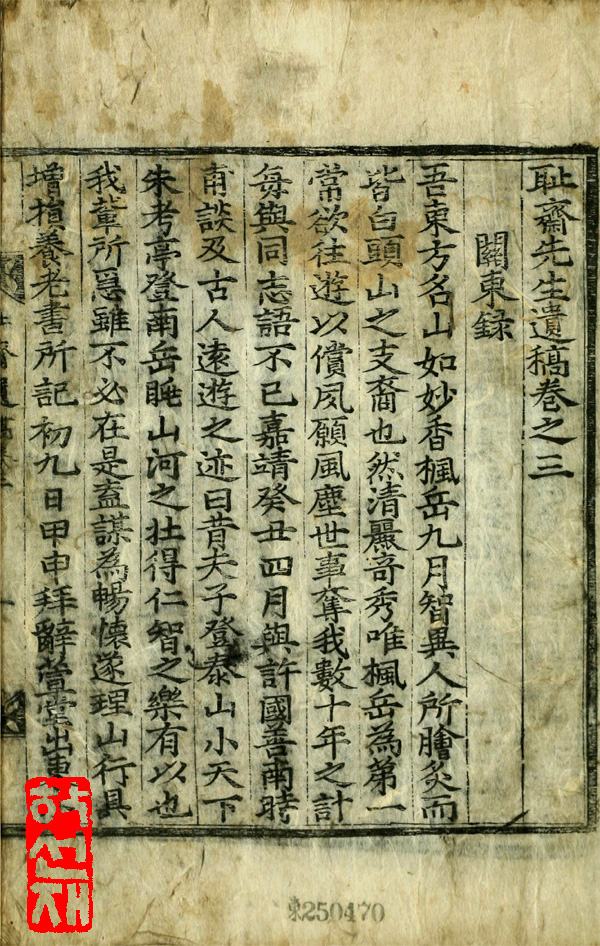 耻齋先生遺稿卷之三
關東録
吾東方名山如妙香楓岳九月智異人所膾炙而
皆白頭山之支裔也然清麗奇秀唯楓岳為第一
當欲往遊以償夙願風塵世事奪我數十年之計
每與同志語不已嘉靖癸丑四月與許國善南時
甫談及古人遠遊之迹曰昔夫子登泰山小天下
朱考亭登南岳眺山河之壮得仁智之樂有以也
我輩所爲雖不必在是盍謀為暢懷遂理山行具
増損養老書所記初九日甲申拜辭萱堂出東
하선재
東250470